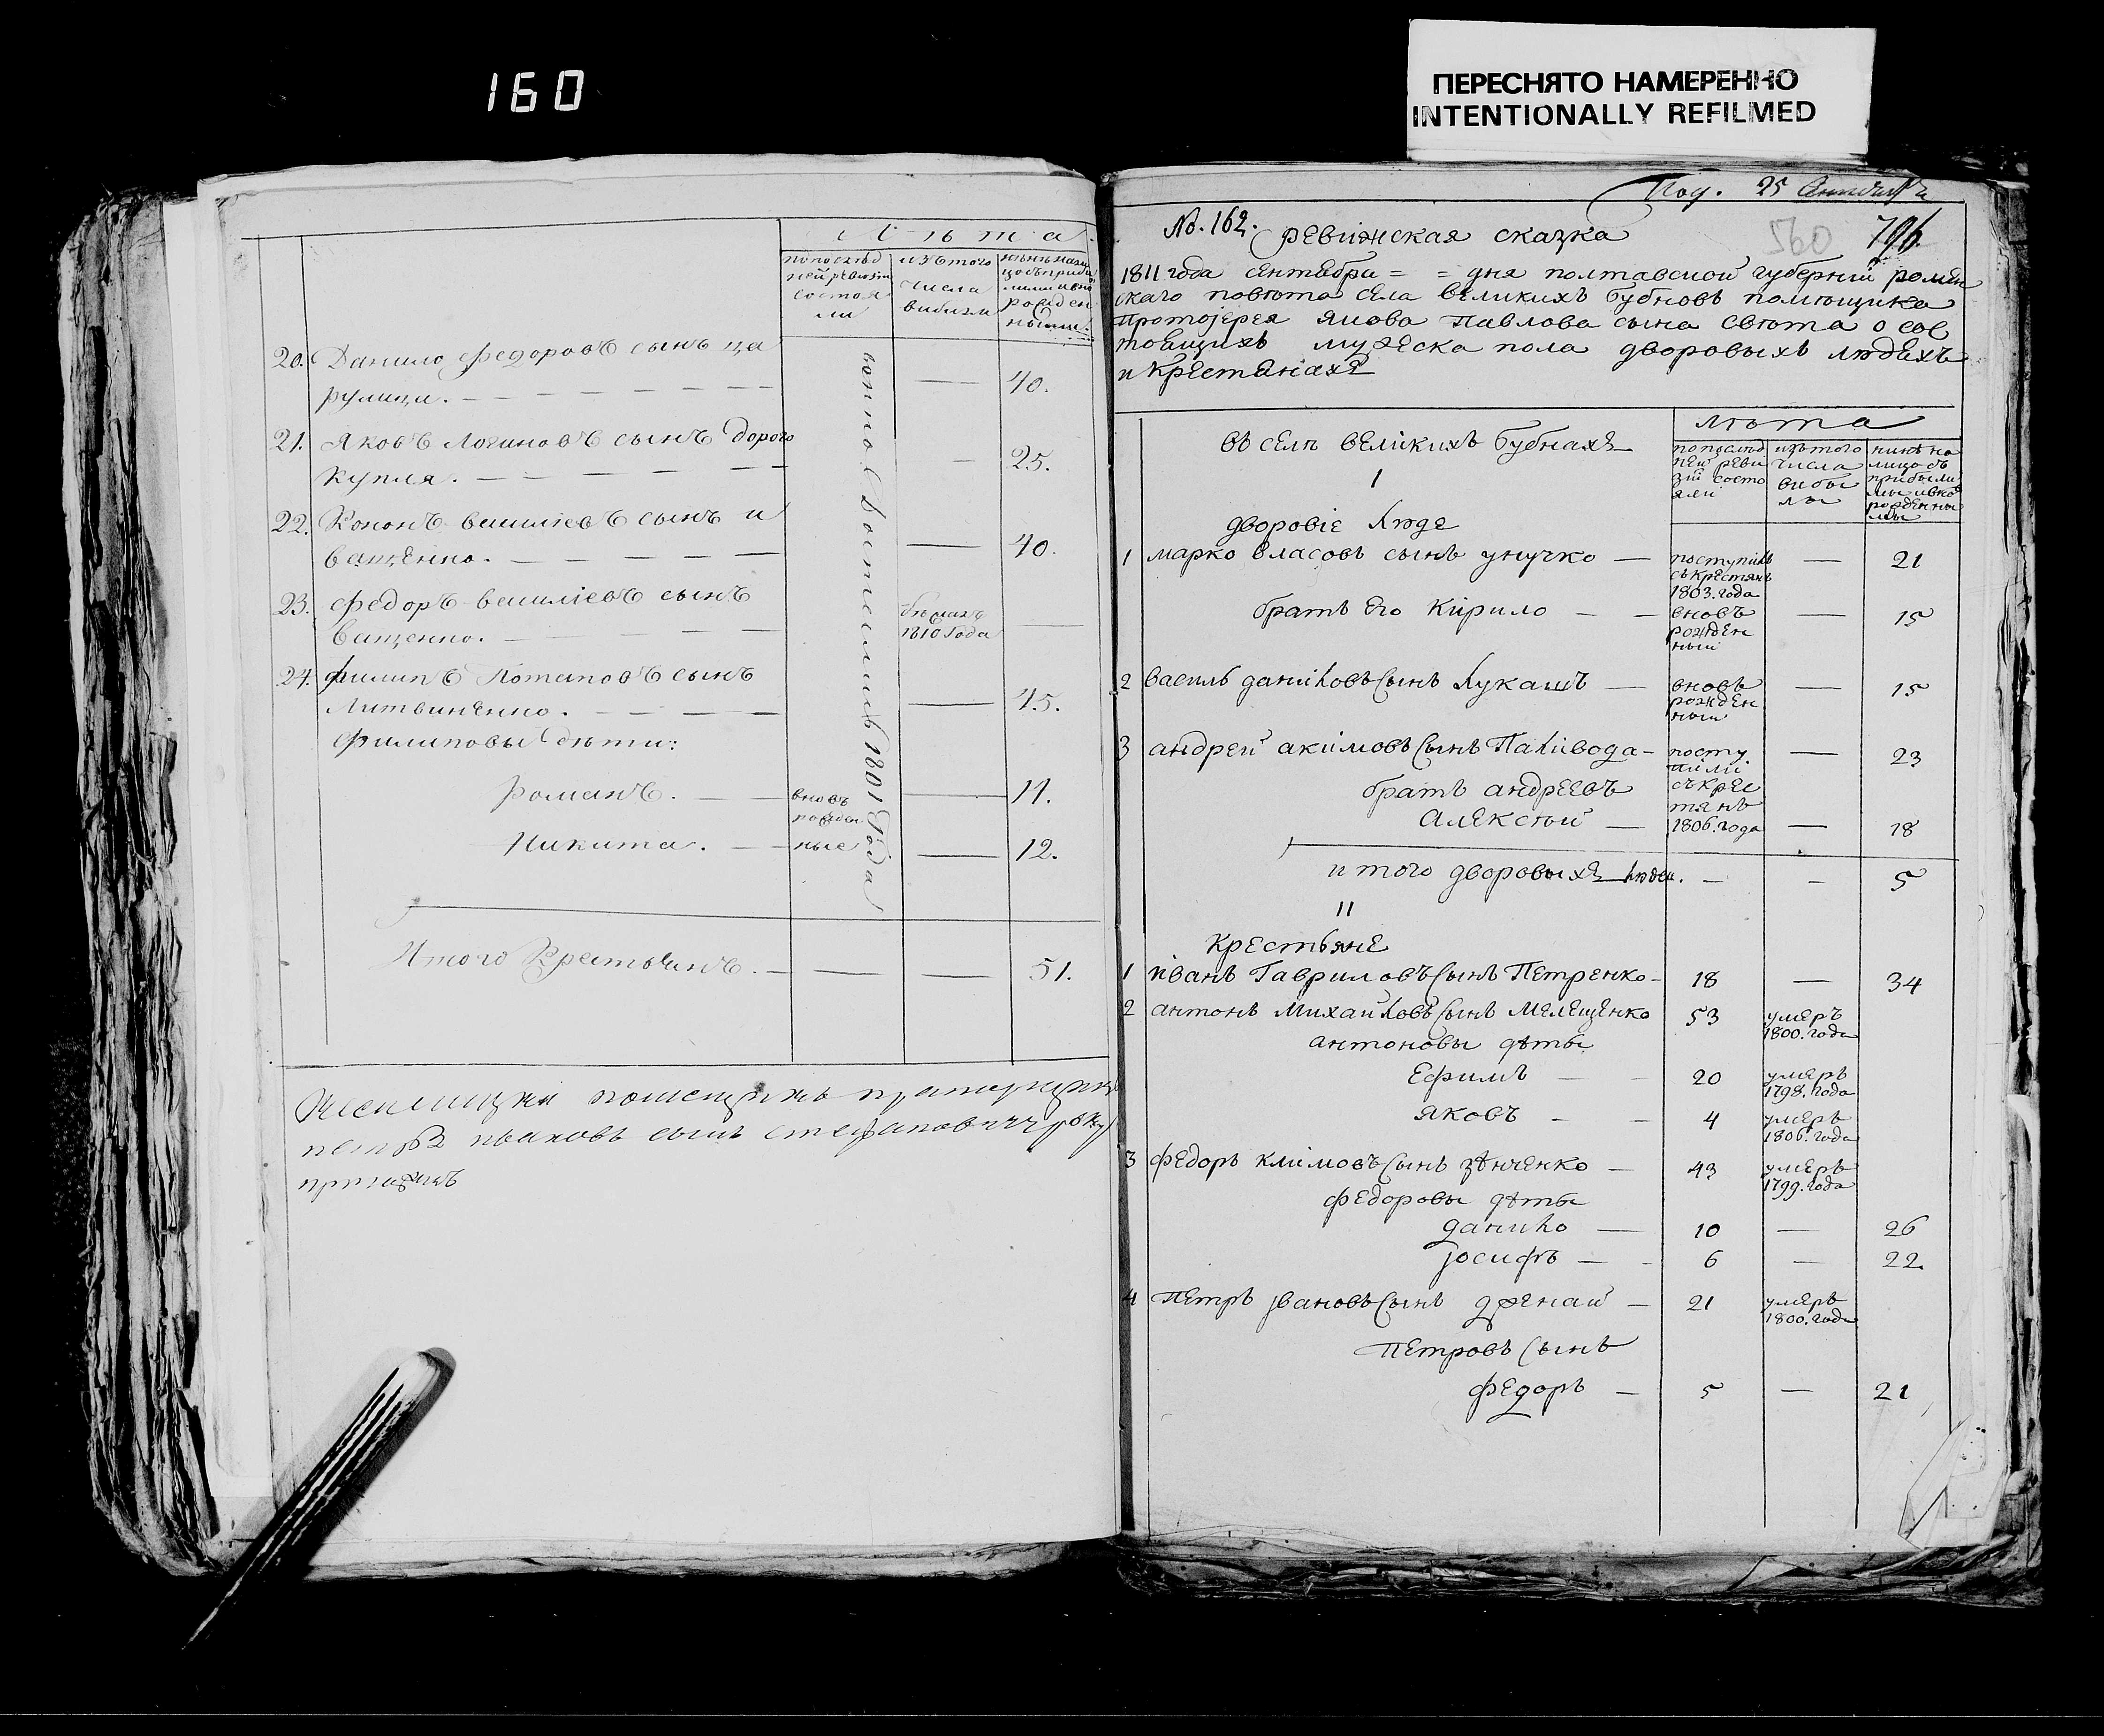 160
ПЕРЕСНЯТО НАМЕРЕННО
INTENTIONALLY REFILMED
Лѣта
попослѣд
ней ревизіи
состоя
ли
изѣтого
числа
вибили
20. Данило федоровъ сынъ ца
рулица. 40.
21. Яковъ логиновъ сынъ Дорого
купля. 25.
22. Кононъ василіевъ сынъ и
ващенко. 40.
23. федоръ василіевъ сынъ
Ващенко. бѣжалъ
1810 Года
24. филипъ Потаповъ сынъ
Литвиненко. 45.
филиповы дѣти:
Романъ. вновь 11.
рожден
Никита. ные 12.
1801 Года
Итого Крестьянъ. 51.
сынъ
Под. 25
560 796.
No. 162. ревижская сказка
1811 года сентебри = = дня полтавской губерніи ромен
скаго повѣта села великихъ бубновъ помѣщика
протоіерея якова павлова сына свѣта о сос
тоящихъ мужеска пола дворовыхъ людехъ
и крестянахъ
лѣта
въ селѣ великихъ бубнахъ
попослѣд
ней реви
зіи состо
яли
изътого
числа
вибы
лы
нинѣ на
лицо съ
прибылы
мы ивнов
рожденны
мы
I
дворовіе люде
1 марко власовъ сынъ унучко — поступилъ — 21
съкрестянъ
1803. года
братъ его Кирило — — вновъ — 15
рожден
ный
2 василь даниловъ сынъ лукашъ — вновъ — 15
рожден
ный
3 андрей акимовъ сынъ Паливода — посту — 23
пили
братъ андреевъ съкрес
тянъ
алексѣй — 1806. года — 18
итого дворовыхъ людей. — — 5
II
крестьяне
1 иванъ Гавриловъ сынъ Петренко — 18 — 34
2 антонъ михайловъ сынъ мелещенко 53 умеръ
1800. года
антоновы дѣты
Ефимъ — — 20 умеръ
1798. года
яковъ — — 4 умеръ
1806. года
3 федоръ климовъ сынъ зѣнченко — 43 умеръ
1799. года
федоровы дѣты
данило — 10 — 26
іосифъ — - 6 — 22.
4 Петръ івановъ сынъ джекай — 21 умеръ
1800. года
петровъ сынъ
федоръ — 5 — 21